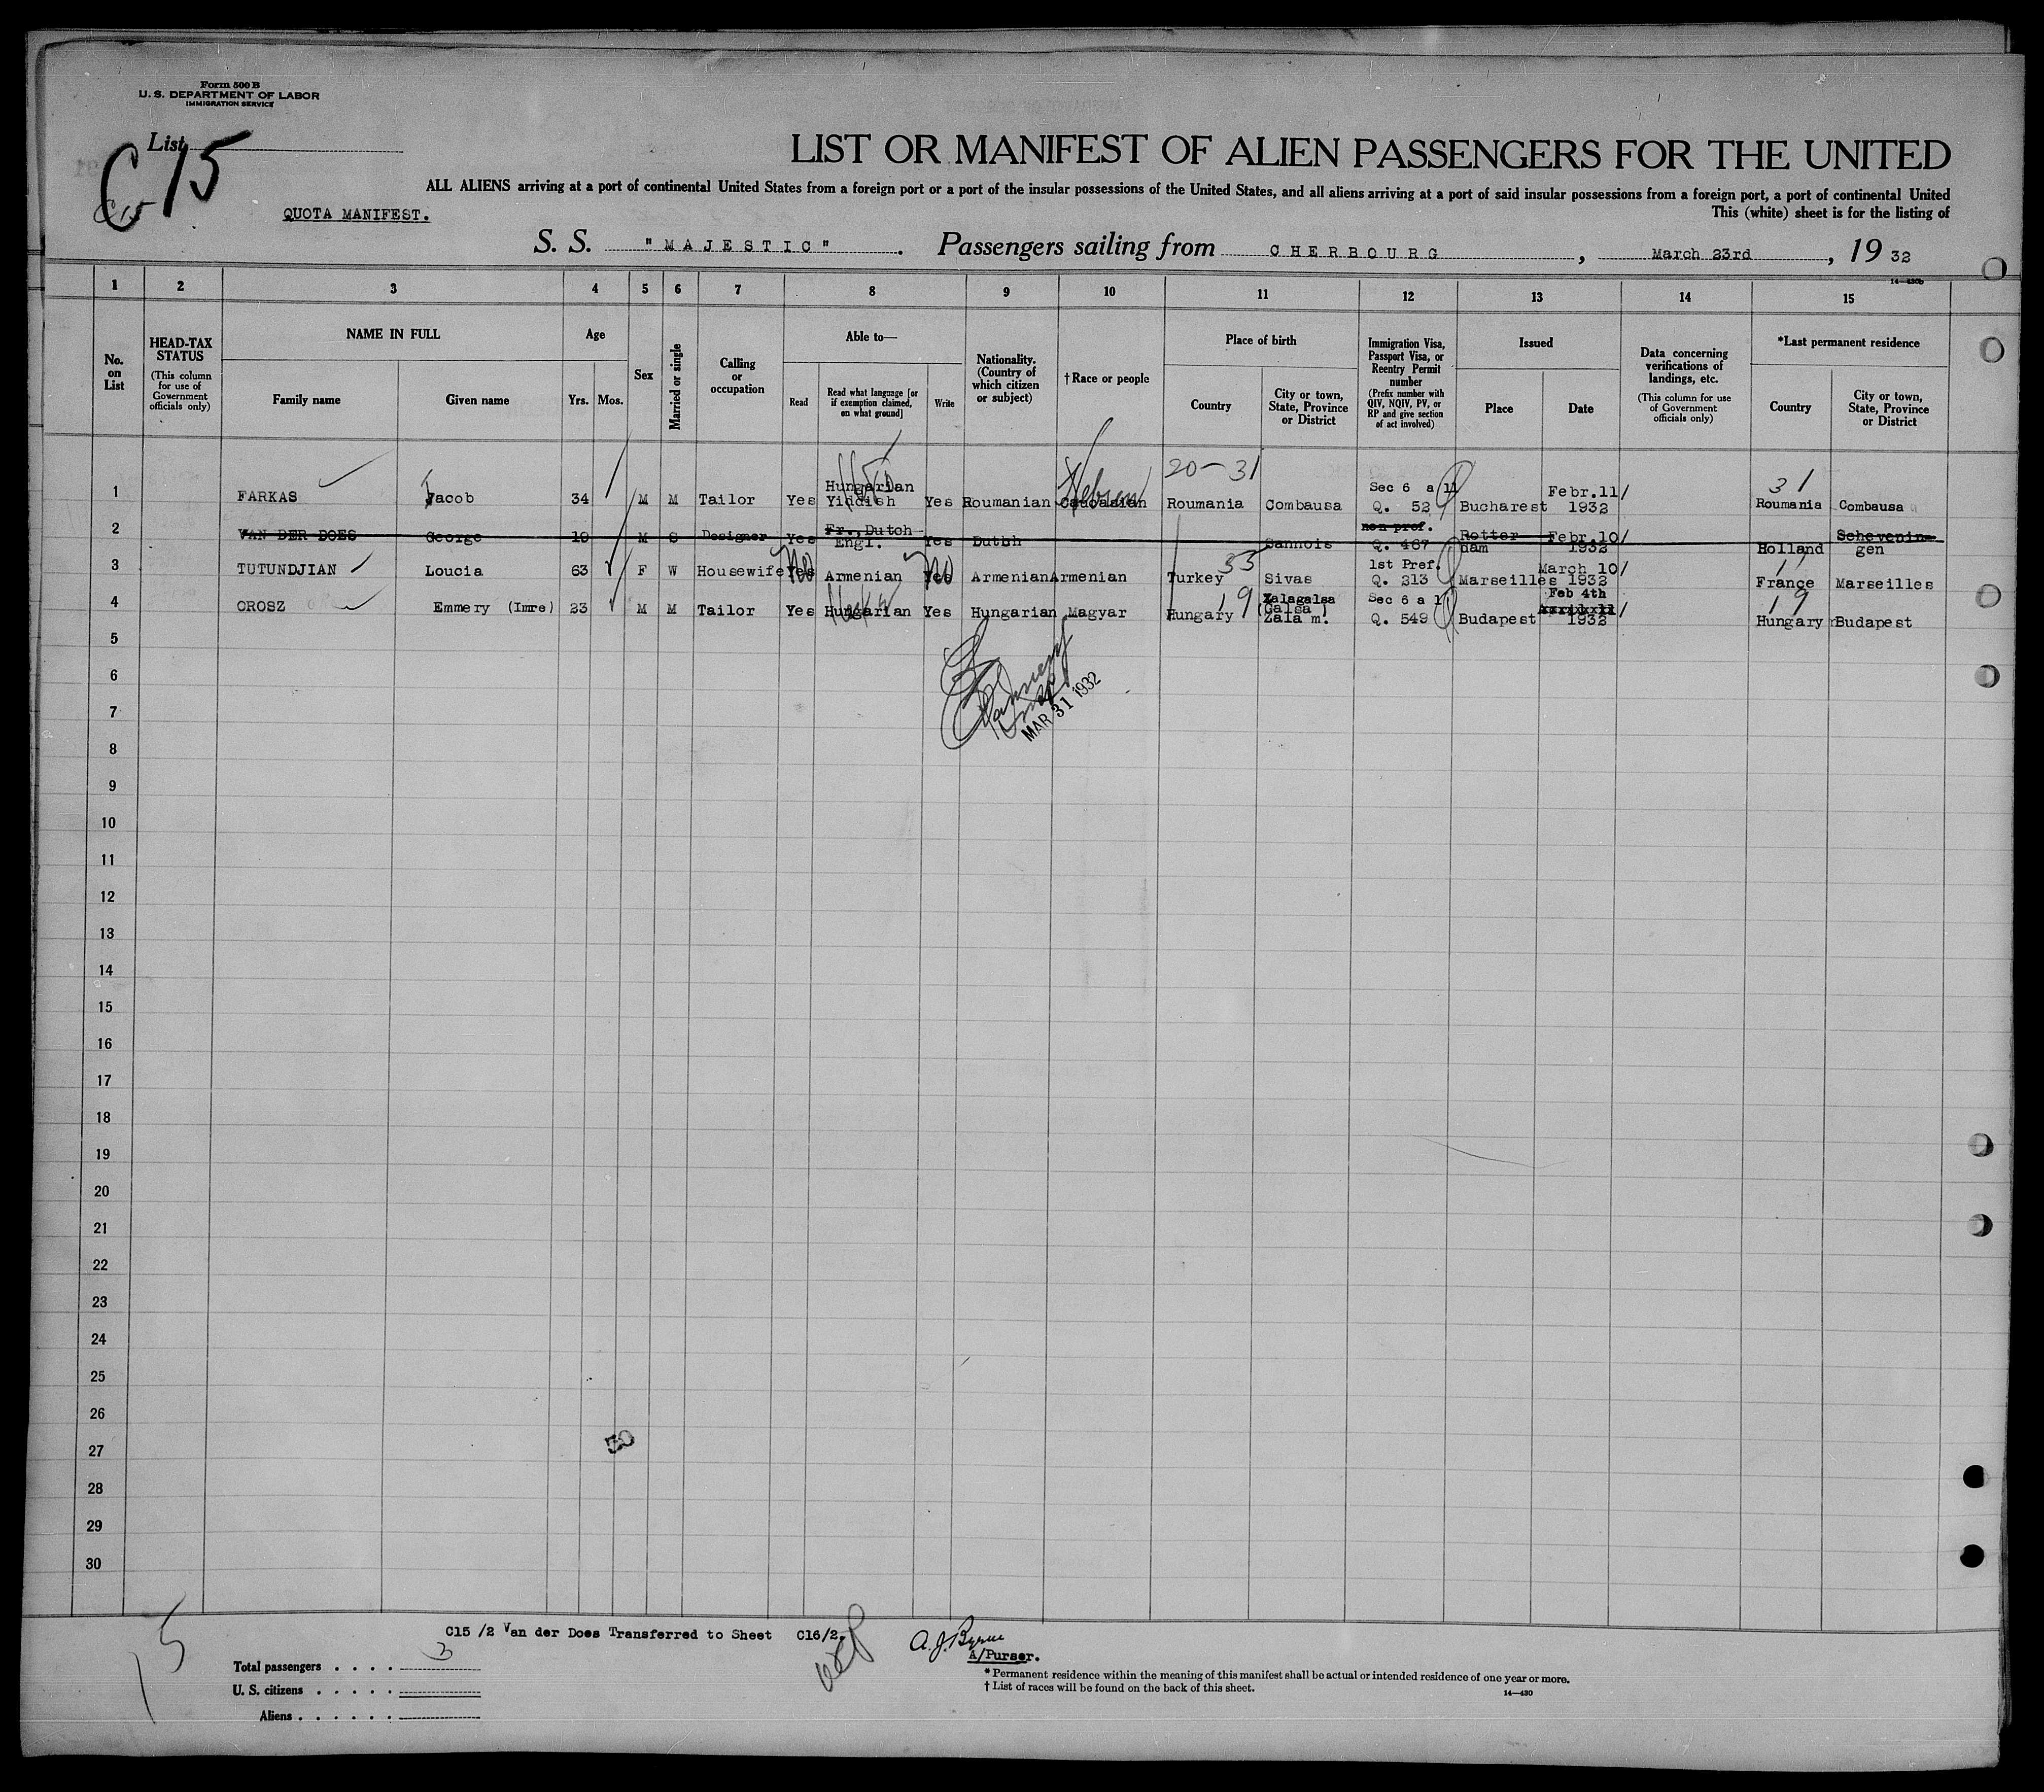 Form 500 B
U. S. DEPARTMENT OF LABOR
IMMIGRATION SERVICE
List
C 15
QUOTA MANIFEST.
LIST OR MANIFEST OF ALIEN PASSENGERS FOR THE UNITED
ALL ALIENS arriving at a port of continental United States from a foreign port or a port of the insular possessions of the United States, and all aliens arriving at a port of said insular possessions from a foreign port, a port of continental United
This (white) sheet is for the listing of
S. S. "MAJESTIC". Passengers sailing from CHERBOURG, March 23rd, 19 32
14—430b
1 2 3 4 5 6 7 8 9 10 11 12 13 14 15
No. on List
HEAD-TAX STATUS
(This column for use of Government officials only)
NAME IN FULL
Family name
Given name
Age
Yrs. Mos.
Sex
Married or single
Calling or occupation
Able to—
Read
Read what language [or if exemption claimed, on what ground]
Write
Nationality. (Country of which citizen or subject)
†Race or people
Place of birth
Country
City or town, State, Province or District
Immigration Visa, Passport Visa, or Reentry Permit number
(Prefix number with QIV, NQIV, PV, or RP and give section of act involved)
Issued
Place
Date
Data concerning verifications of landings, etc.
(This column for use of Government officials only)
*Last permanent residence
Country
City or town, State, Province or District
20-31
31
1 FARKAS Jacob 34 M M Tailor Yes Hungarian Yiddish Yes Roumanian Caucasian Hebrew Roumania Combausa Sec 6 a 1 Q. 52 Bucharest Febr.11/ 1932 Roumania Combausa
2 VAN DER DOES George 19 M S Designer Yes Fr., Dutch Engl. Yes Dutch Sannois non pref. Q. 467 Rotterdam Febr.10/ 1932 Holland Scheveningen
3 TUTUNDJIAN Loucia 63 F W Housewife Yes No Armenian Yes No Armenian Armenian Turkey 33 Sivas 1st Pref. Q. 213 Marseilles March 10/ 1932 France 11 Marseilles
4 OROSZ Emmery (Imre) 23 M M Tailor Yes Hungarian Yes Hungarian Magyar Hungary 19 Zalagalsa (Galsa) Zala m. Sec 6 a 1 Q. 549 Budapest Feb 4th 1932 Hungary 19 Budapest
5
6
MAR 31 1932
7
8
9
10
11
12
13
14
15
16
17
18
19
20
21
22
23
24
25
26
27
30
28
29
30
15
C15 /2 Van der Does Transferred to Sheet C16/2.
A. J. Byrne
A/Purser.
Total passengers . . . . 3
U. S. citizens . . . . .
Aliens . . . . . .
* Permanent residence within the meaning of this manifest shall be actual or intended residence of one year or more.
† List of races will be found on the back of this sheet.
14—430